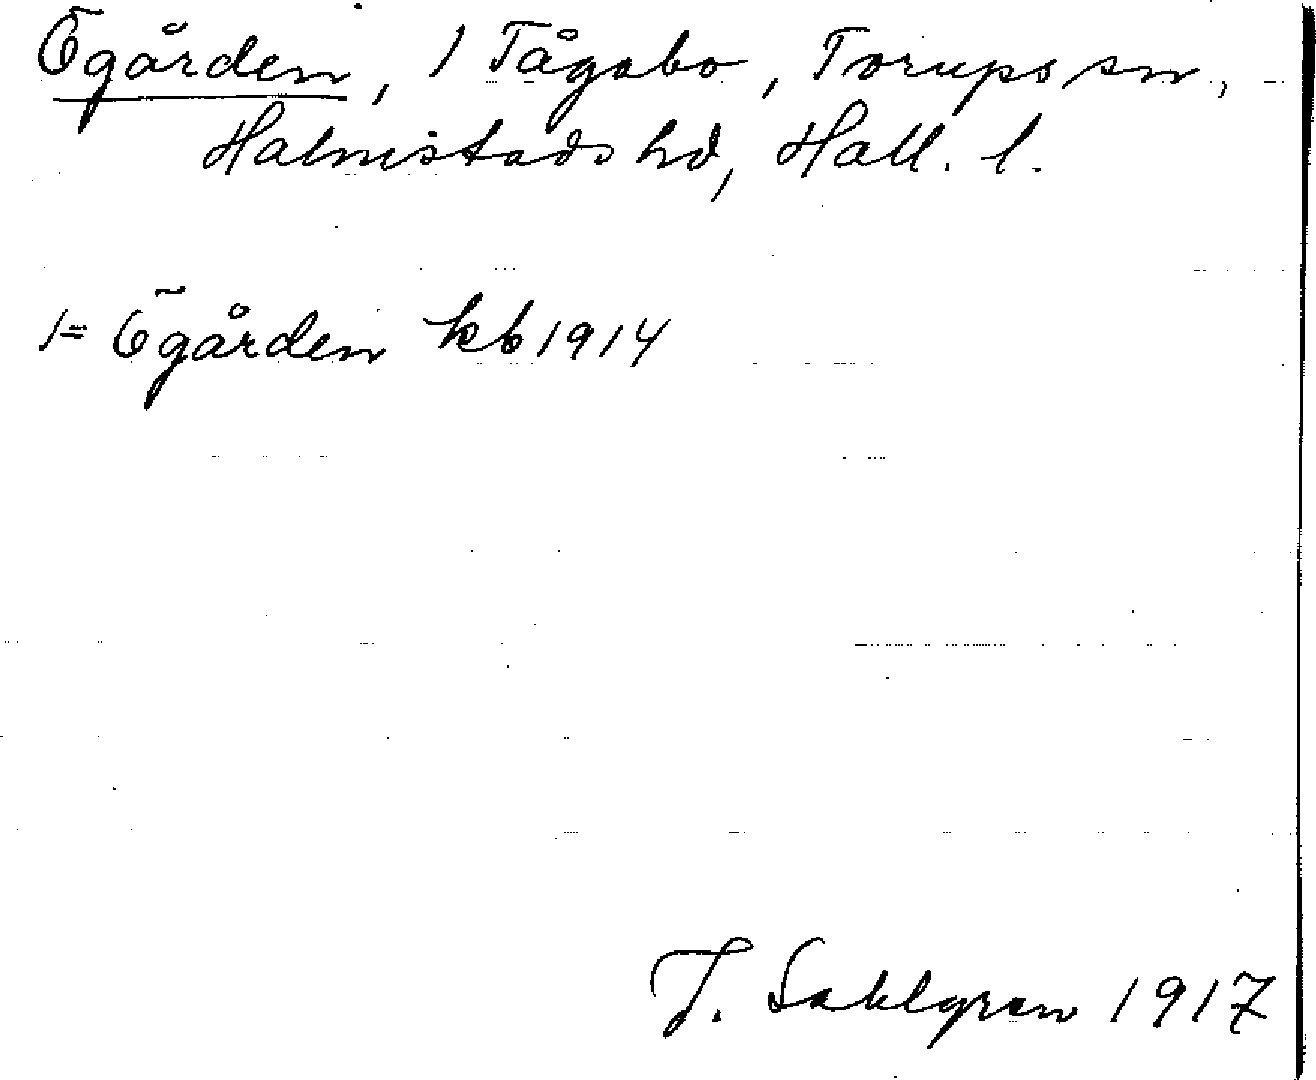 Ögården, / Tågabo, Torups sn,
Halmstads hd, Hall. l.
/= Ögården kb 1914
J. Sahlgren 1917